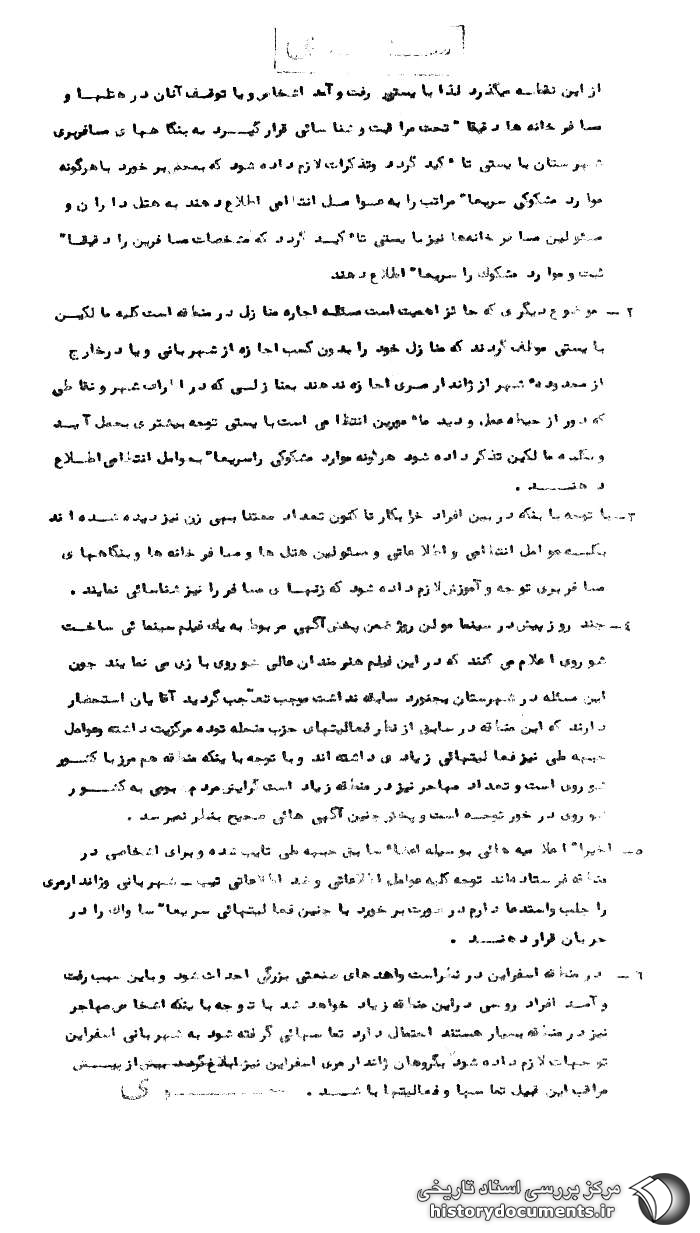 از این نقاط میگذرد لذا بایستی رفت و آمد اشخاص و یا توقف آنان در هتلها و
مسافرخانه ها دقیقا" تحت مراقبت و شناسائی قرار گیرد به بنگاههای مسافربری
شهرستان بایستی تاکید گردد وتذکرات لازم داده شود که بمحض برخورد باهرگونه
موارد مشکوکی سریعا" مراتب را به عوامل انتظامی اطلاع دهند به هتل داران و
مسئولین مسافرخانه‌ها نیز بایستی تاکید گردد که مشخصات مسافرین را دقیقا"
ثبت و موارد مشکوک را سریعا" اطلاع دهند
۲ - موضوع دیگری که حائز اهمیت است مسئله اجاره منازل در منطقه است کلیه مالکین
بایستی موظف گردند که منازل خود را بدون کسب اجازه از شهربانی و یا درخارج
از محدوده شهر از ژاندارمری اجازه ندهند بمنازلی که در اطراف شهر و نقاطی
که دور از حیطه عمل و دید مامورین انتظامی است بایستی توجه بیشتری بعمل آید
و بکلیه مالکین تذکر داده شود هرگونه موارد مشکوکی راسریعا" به عوامل انتظامی اطلاع
دهند .
۳ - با توجه باینکه در بین افراد خرابکار تاکنون تعداد معتنابهی زن نیز دیده شده اند
بکلیه عوامل انتظامی و اطلاعاتی و مسئولین هتل ها و مسافرخانه ها و بنگاههای
مسافربری توجه و آموزش لازم داده شود که زنهای مسافر را نیز شناسائی نمایند .
٤ - چند روز پیش در سینما مولن روژ ضمن پخش آگهی مربوط به یک فیلم سینمائی ساخت
شوروی اعلام می کنند که در این فیلم هنرمندان عالی شوروی بازی می نمایند چون
این مسئله در شهرستان بجنورد سابقه نداشت موجب تعجب گردید آقایان استحضار
دارند که این منطقه در سابق از نظر فعالیتهای حزب منحله توده مرکزیت داشته وعوامل
جبهه ملی نیز فعالیتهائی زیادی داشته اند و با توجه باینکه منطقه هم مرز با کشور
شوروی است و تعداد مهاجر نیز در منطقه زیاد است گرایش مردم بومی به کشور
شوروی در خور توجه است و پخش چنین آگهی هائی صحیح بنظر نمیرسد .
۵ - اخیرا" اعلامیه هائی بوسیله اعضاء سابق جبهه ملی تایپ شده و برای اشخاصی در
منطقه فرستاده‌اند توجه کلیه عوامل اطلاعاتی و ضد اطلاعاتی تیپ - شهربانی وژاندارمری
را جلب واستدعا دارم در صورت برخورد با چنین فعالیتهائی سریعا" ساواک را در
جریان قرار دهند .
٦ - در منطقه اسفراین در نظراست واحدهای صنعتی بزرگی احداث شود و باین سبب رفت
و آمد افراد روسی دراین منطقه زیاد خواهد شد با توجه باینکه اشخاص مهاجر
نیز در منطقه بسیار هستند احتمال دارد تماسهائی گرفته شود به شهربانی اسفراین
توجیهات لازم داده شود بگروهان ژاندارمری اسفراین نیز ابلاغ گردد بیش از پیش
مراقب این قبیل تماسها و فعالیتها باشند .
مرکز بررسی اسناد تاریخی
historydocuments.ir